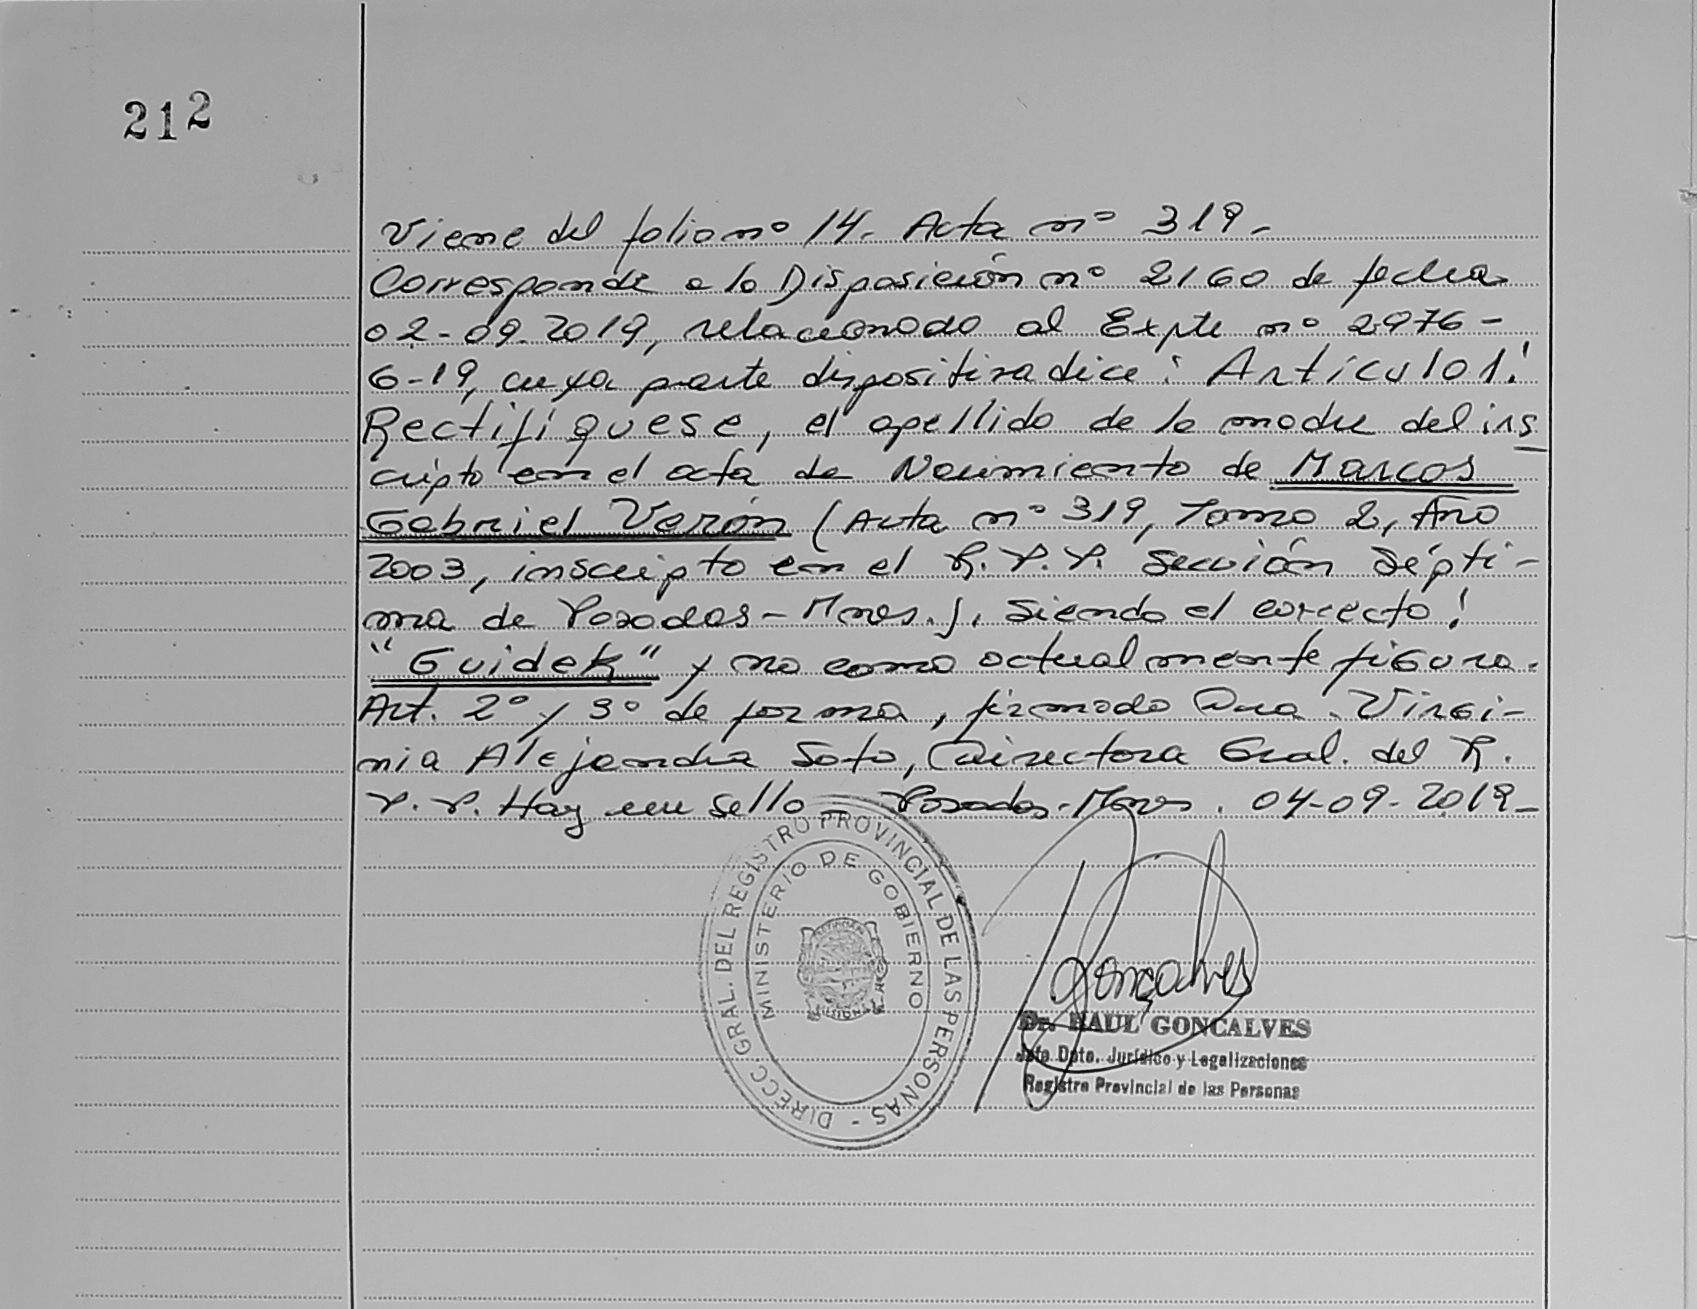 212
Viene del folio nº 14. Acta nº 319.
Corresponde a la Disposición nº 2160 de fecha
02-09-2019, relacionado al Expte nº 2976-
6-19, cuya parte dispositiva dice: Artículo 1:
Rectifíquese, el apellido de la madre del ins
cripto en el acta de Nacimiento de Marcos
Gabriel Verón (Acta nº 319, Tomo 2, Año
2003, inscripto en el R.P.P. Sección Sépti-
ma de Posadas-Mnes.), siendo el correcto:
"Guidek" y no como actualmente figura.
Art. 2º y 3º de forma, firmado Dra. Virgi-
nia Alejandra Soto, Directora Gral. del R.
P.P. Hay un sello Posadas-Mnes. 04-09-2019-
DIRECC. GRAL. DEL REGISTRO PROVINCIAL DE LAS PERSONAS -
MINISTERIO DE GOBIERNO
Gonçalves
Dr. RAUL GONCALVES
Jefe Dpto. Jurídico y Legalizaciones
Registro Provincial de las Personas